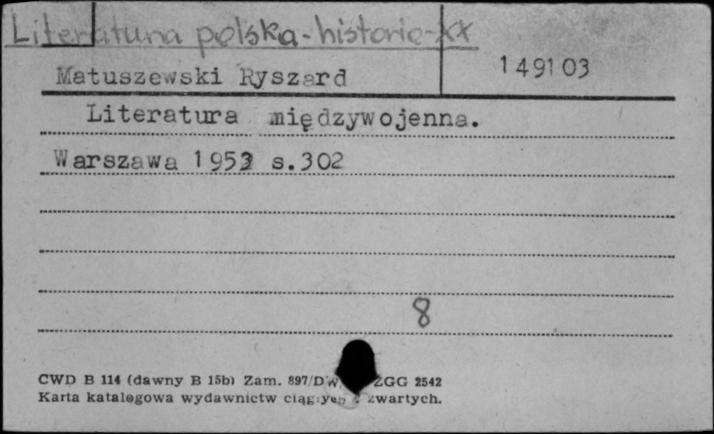 Literatura polska-historia-XX
149103
Matuszewski Ryszard
Literatura międzywojenna.
Warszawa 1953 s.302
8
CWD B 114 (dawny B 15b) Zam. 897/DW ZGG 2542
Karta katalogowa wydawnictw ciągłych i zwartych.